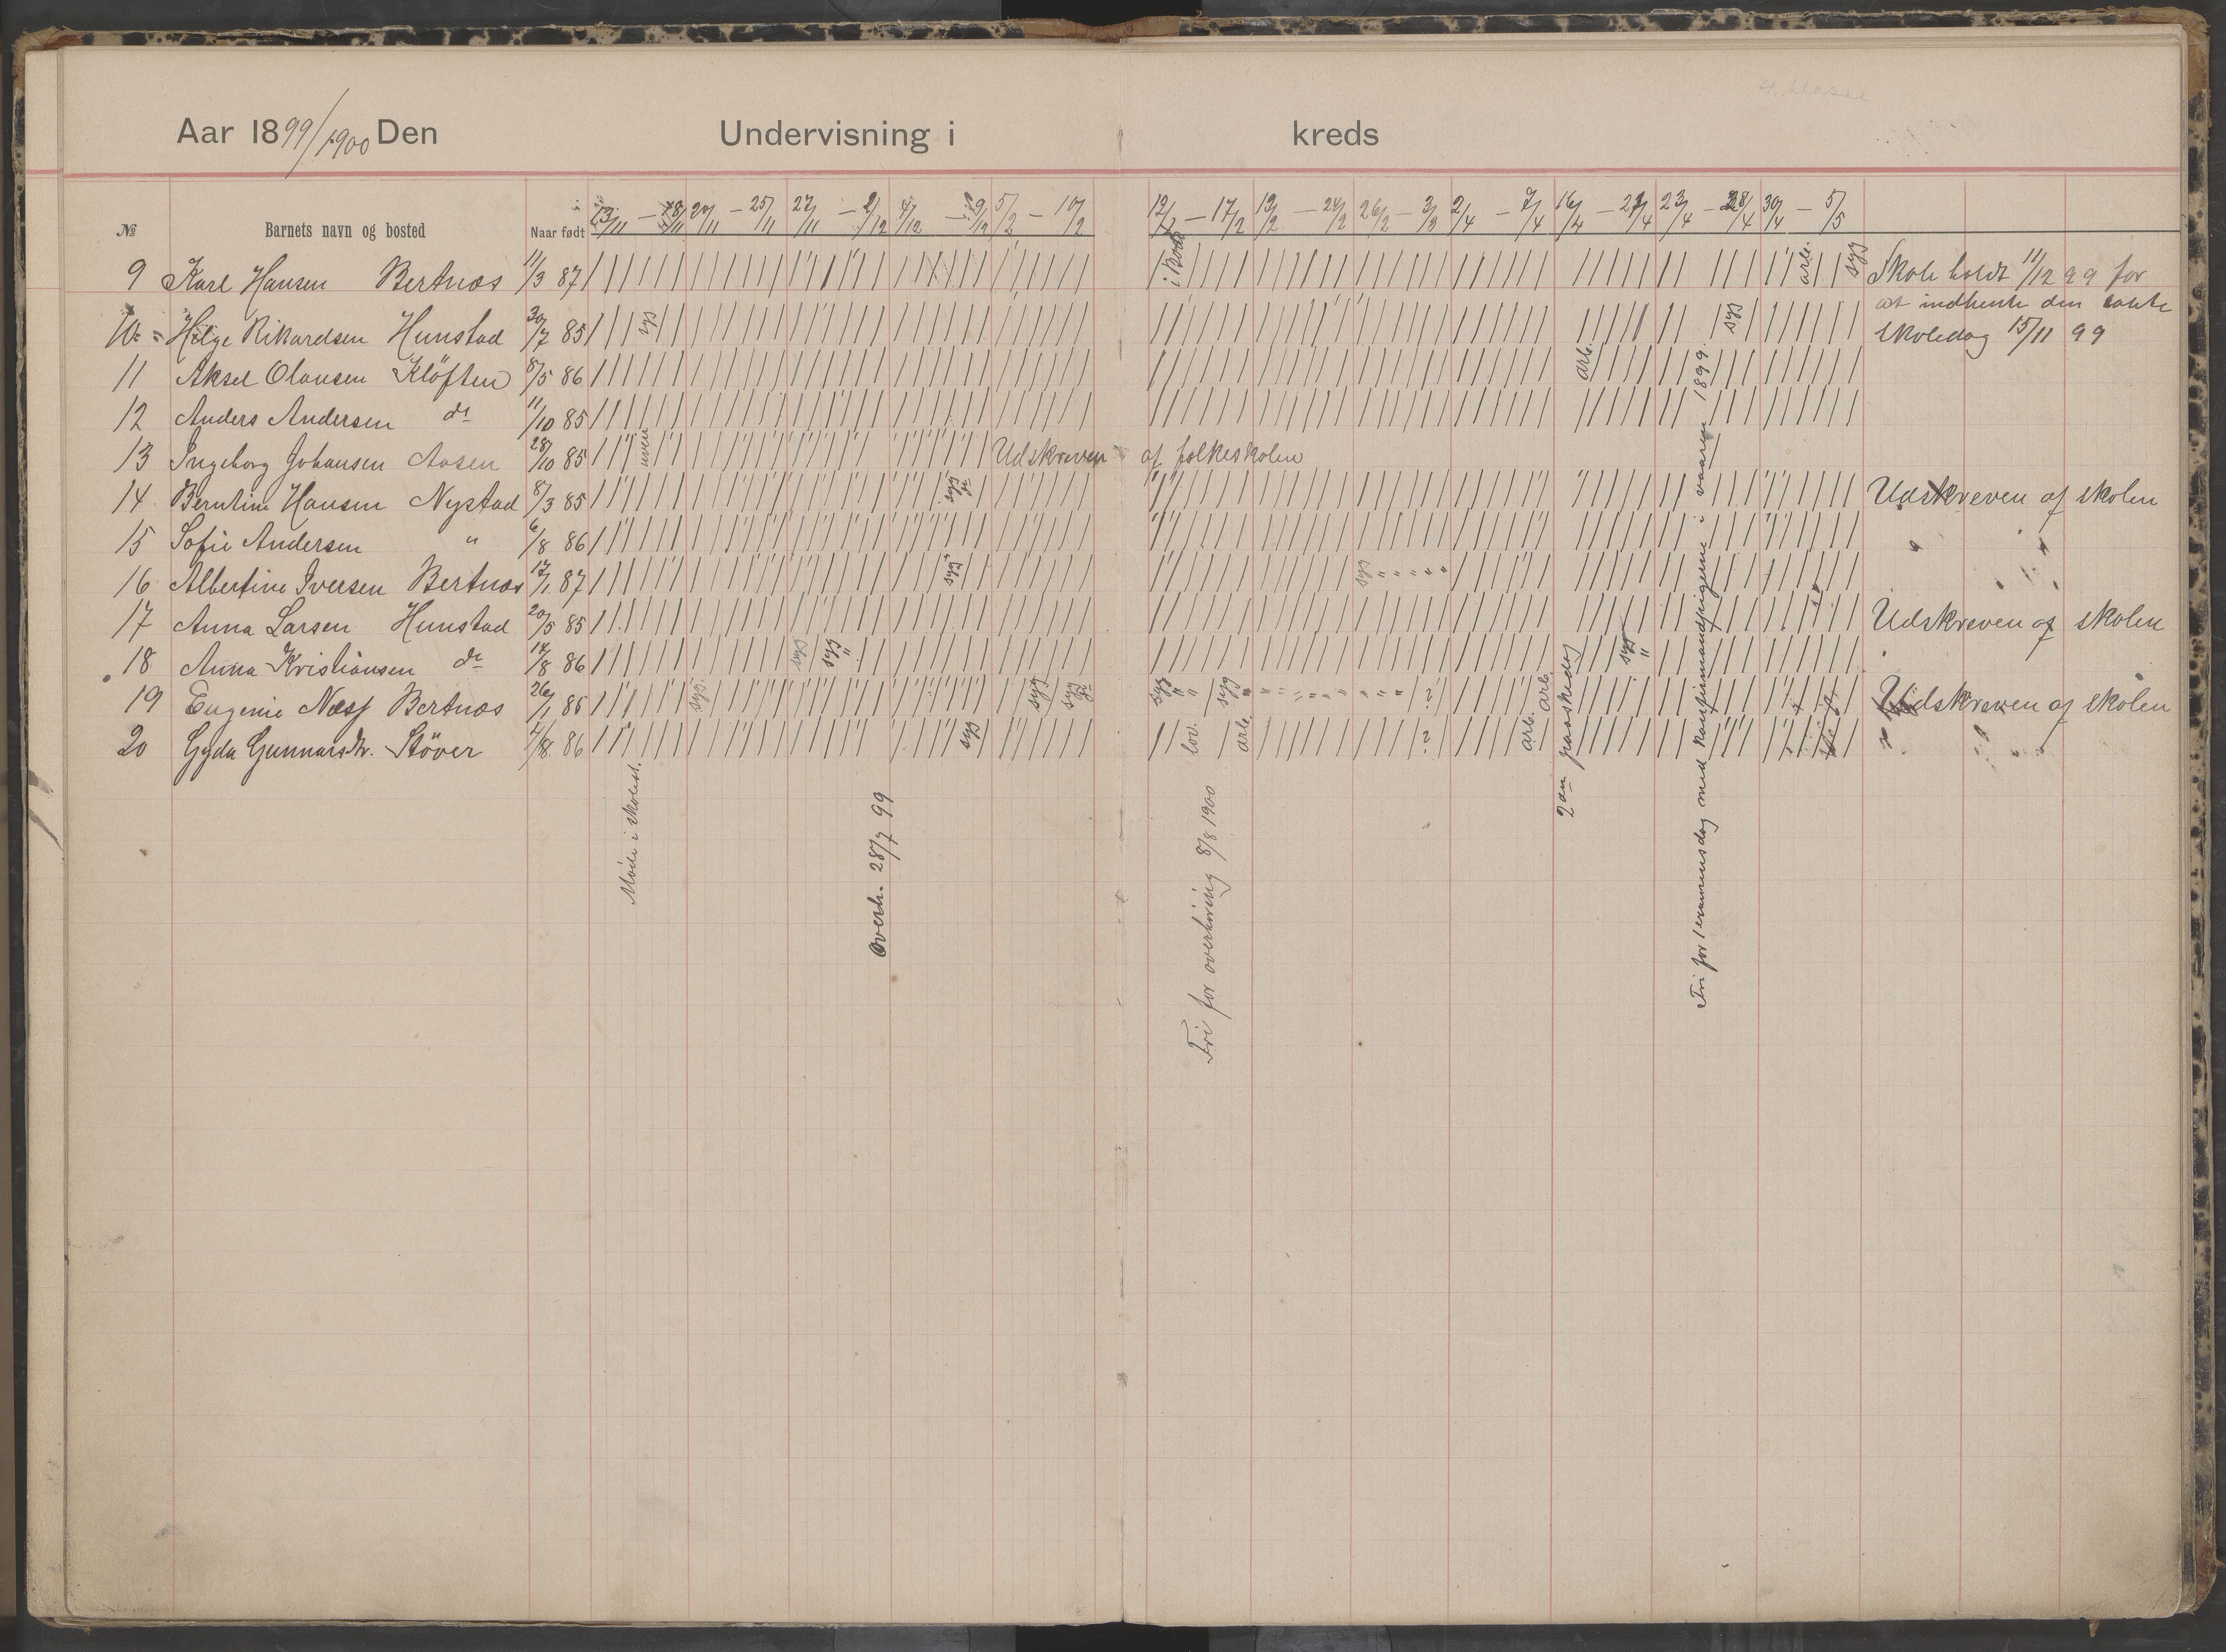 4. klasse
Aar 1899/1900 Den Undervisning i kreds
№ Barnets navn og bosted Naar født 13/11 – 18/11 20/11 – 25/11 27/11 – 2/12 4/12 – 9/12 5/2 – 10/2 12/2 – 17/2 19/2 – 24/2 26/2 – 3/3 2/4 – 7/4 16/4 – 21/4 23/4 – 28/4 30/4 – 5/5
9 Karl Hansen Bertnæs 11/3 87 i Bodø arb. syg Skole holdt 11/12 99 for
at indhente den tabte
10 Helge Rikardsen Hunstad 30/7 85 syg syg skoledag 15/11 99
11 Aksel Olausen Kløften 8/5 86 arb.
12 Anders Andersen do 11/10 85
13 Ingeborg Johansen Aasen 28/10 85 Udskreven af folkeskolen
14 Berntine Hansen Nystad 8/3 85 syg Udskreven af skolen
15 Sofie Andersen " 6/8 86 " "
16 Albertine Iversen Bertnæs 17/1 87 syg " syg " " " " "
17 Anna Larsen Hunstad 20/5 85 Udskreven af skolen
18 Anna Kristiansen do 14/8 86 syg syg " syg "
19 Eugenie Næss Bertnæs 26/1 86 syg. syg syg syg " " syg " " " " " " " " " " ? arb. Udskreven af skolen
20 Gyda Gunnarsdtr. Støver 4/8 86 syg lov. arb. ? arb.
Møde i skolest.
Overh. 28/7 99
Fri for overhøring 8/8 1900
2den paaskedag
Fri for 1 examensdag med konfirmandpigerne i vaaren 1899.